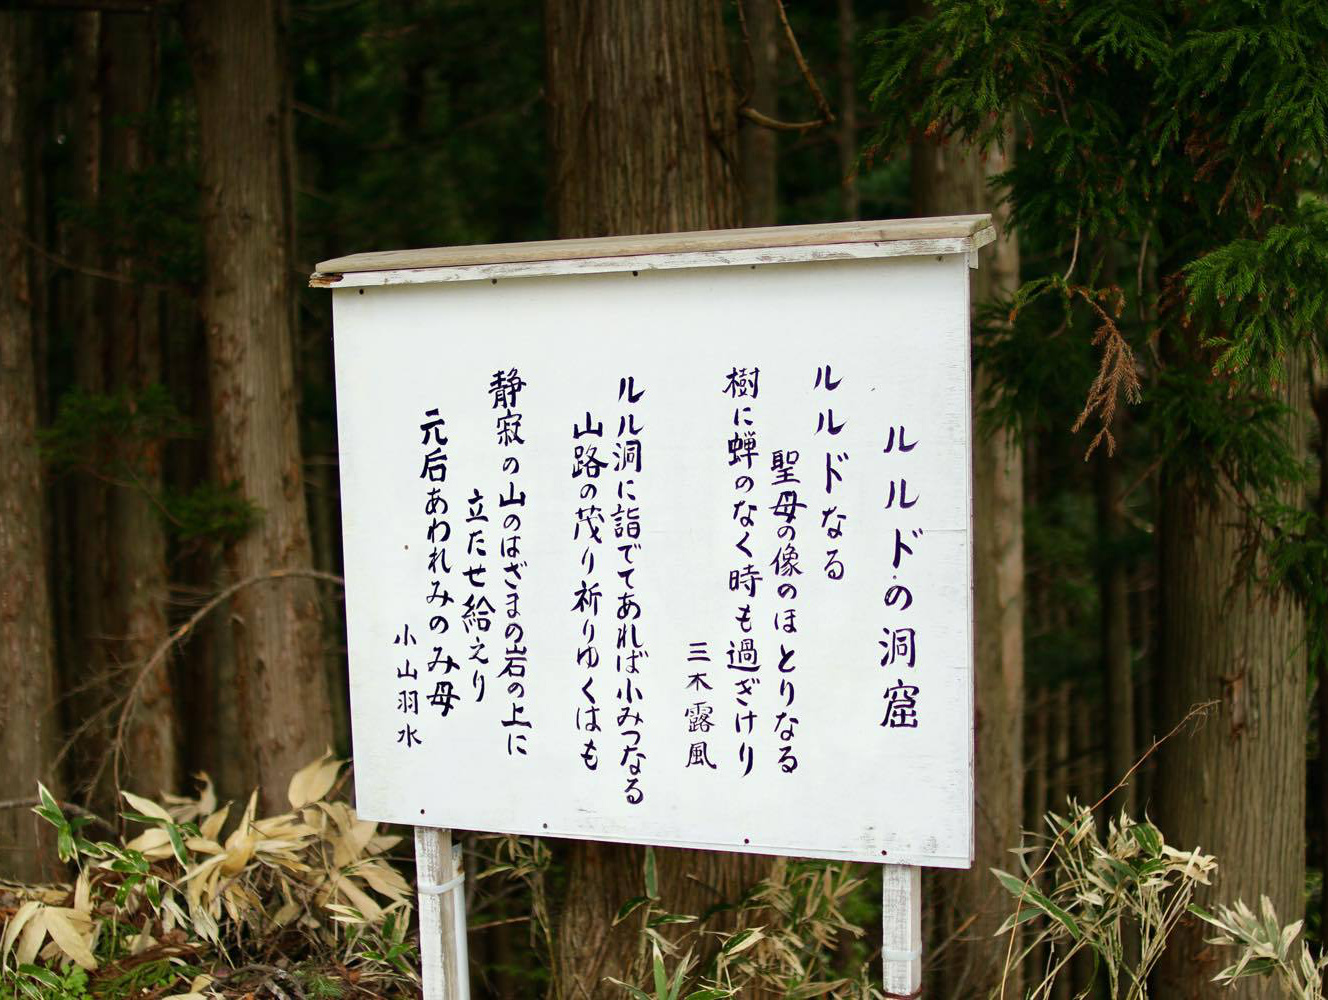 ルルドの洞窟
ルルドなる
聖母の像のほとりなる
樹に蝉のなく時も過ぎけり
三木露風
ルル洞に詣でてあれば小みつなる
山路の茂り祈りゆくはも
静寂の山のはざまの岩の上に
立たせ給えり
元后あわれみのみ母
小山羽水